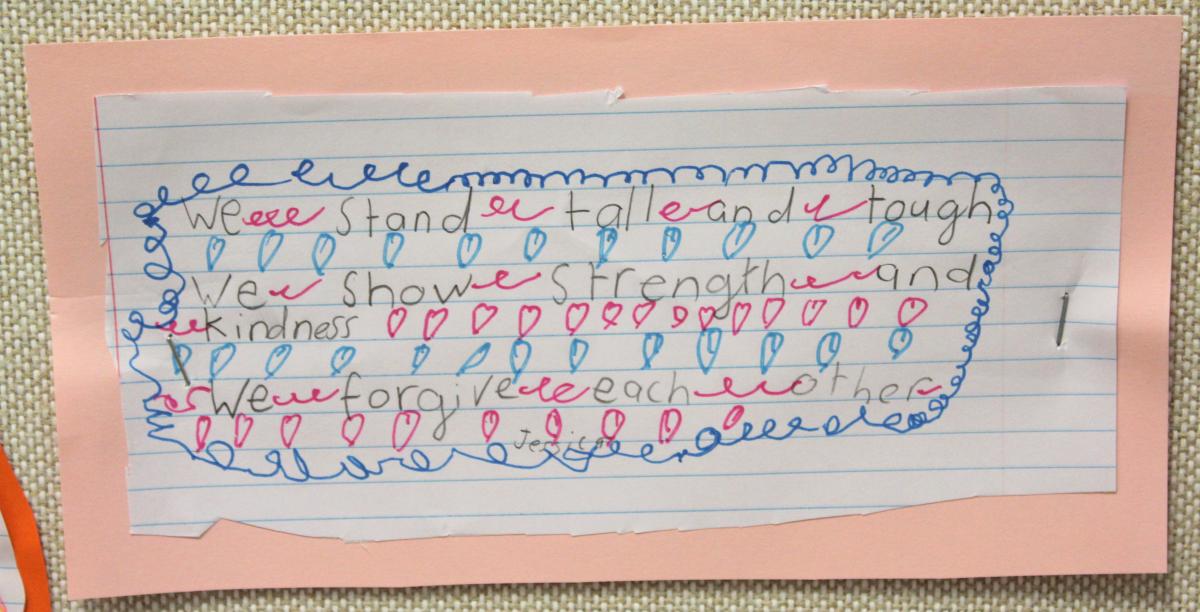 We stand tall and tough
We show strength and
kindness
We forgive each other
Jessica